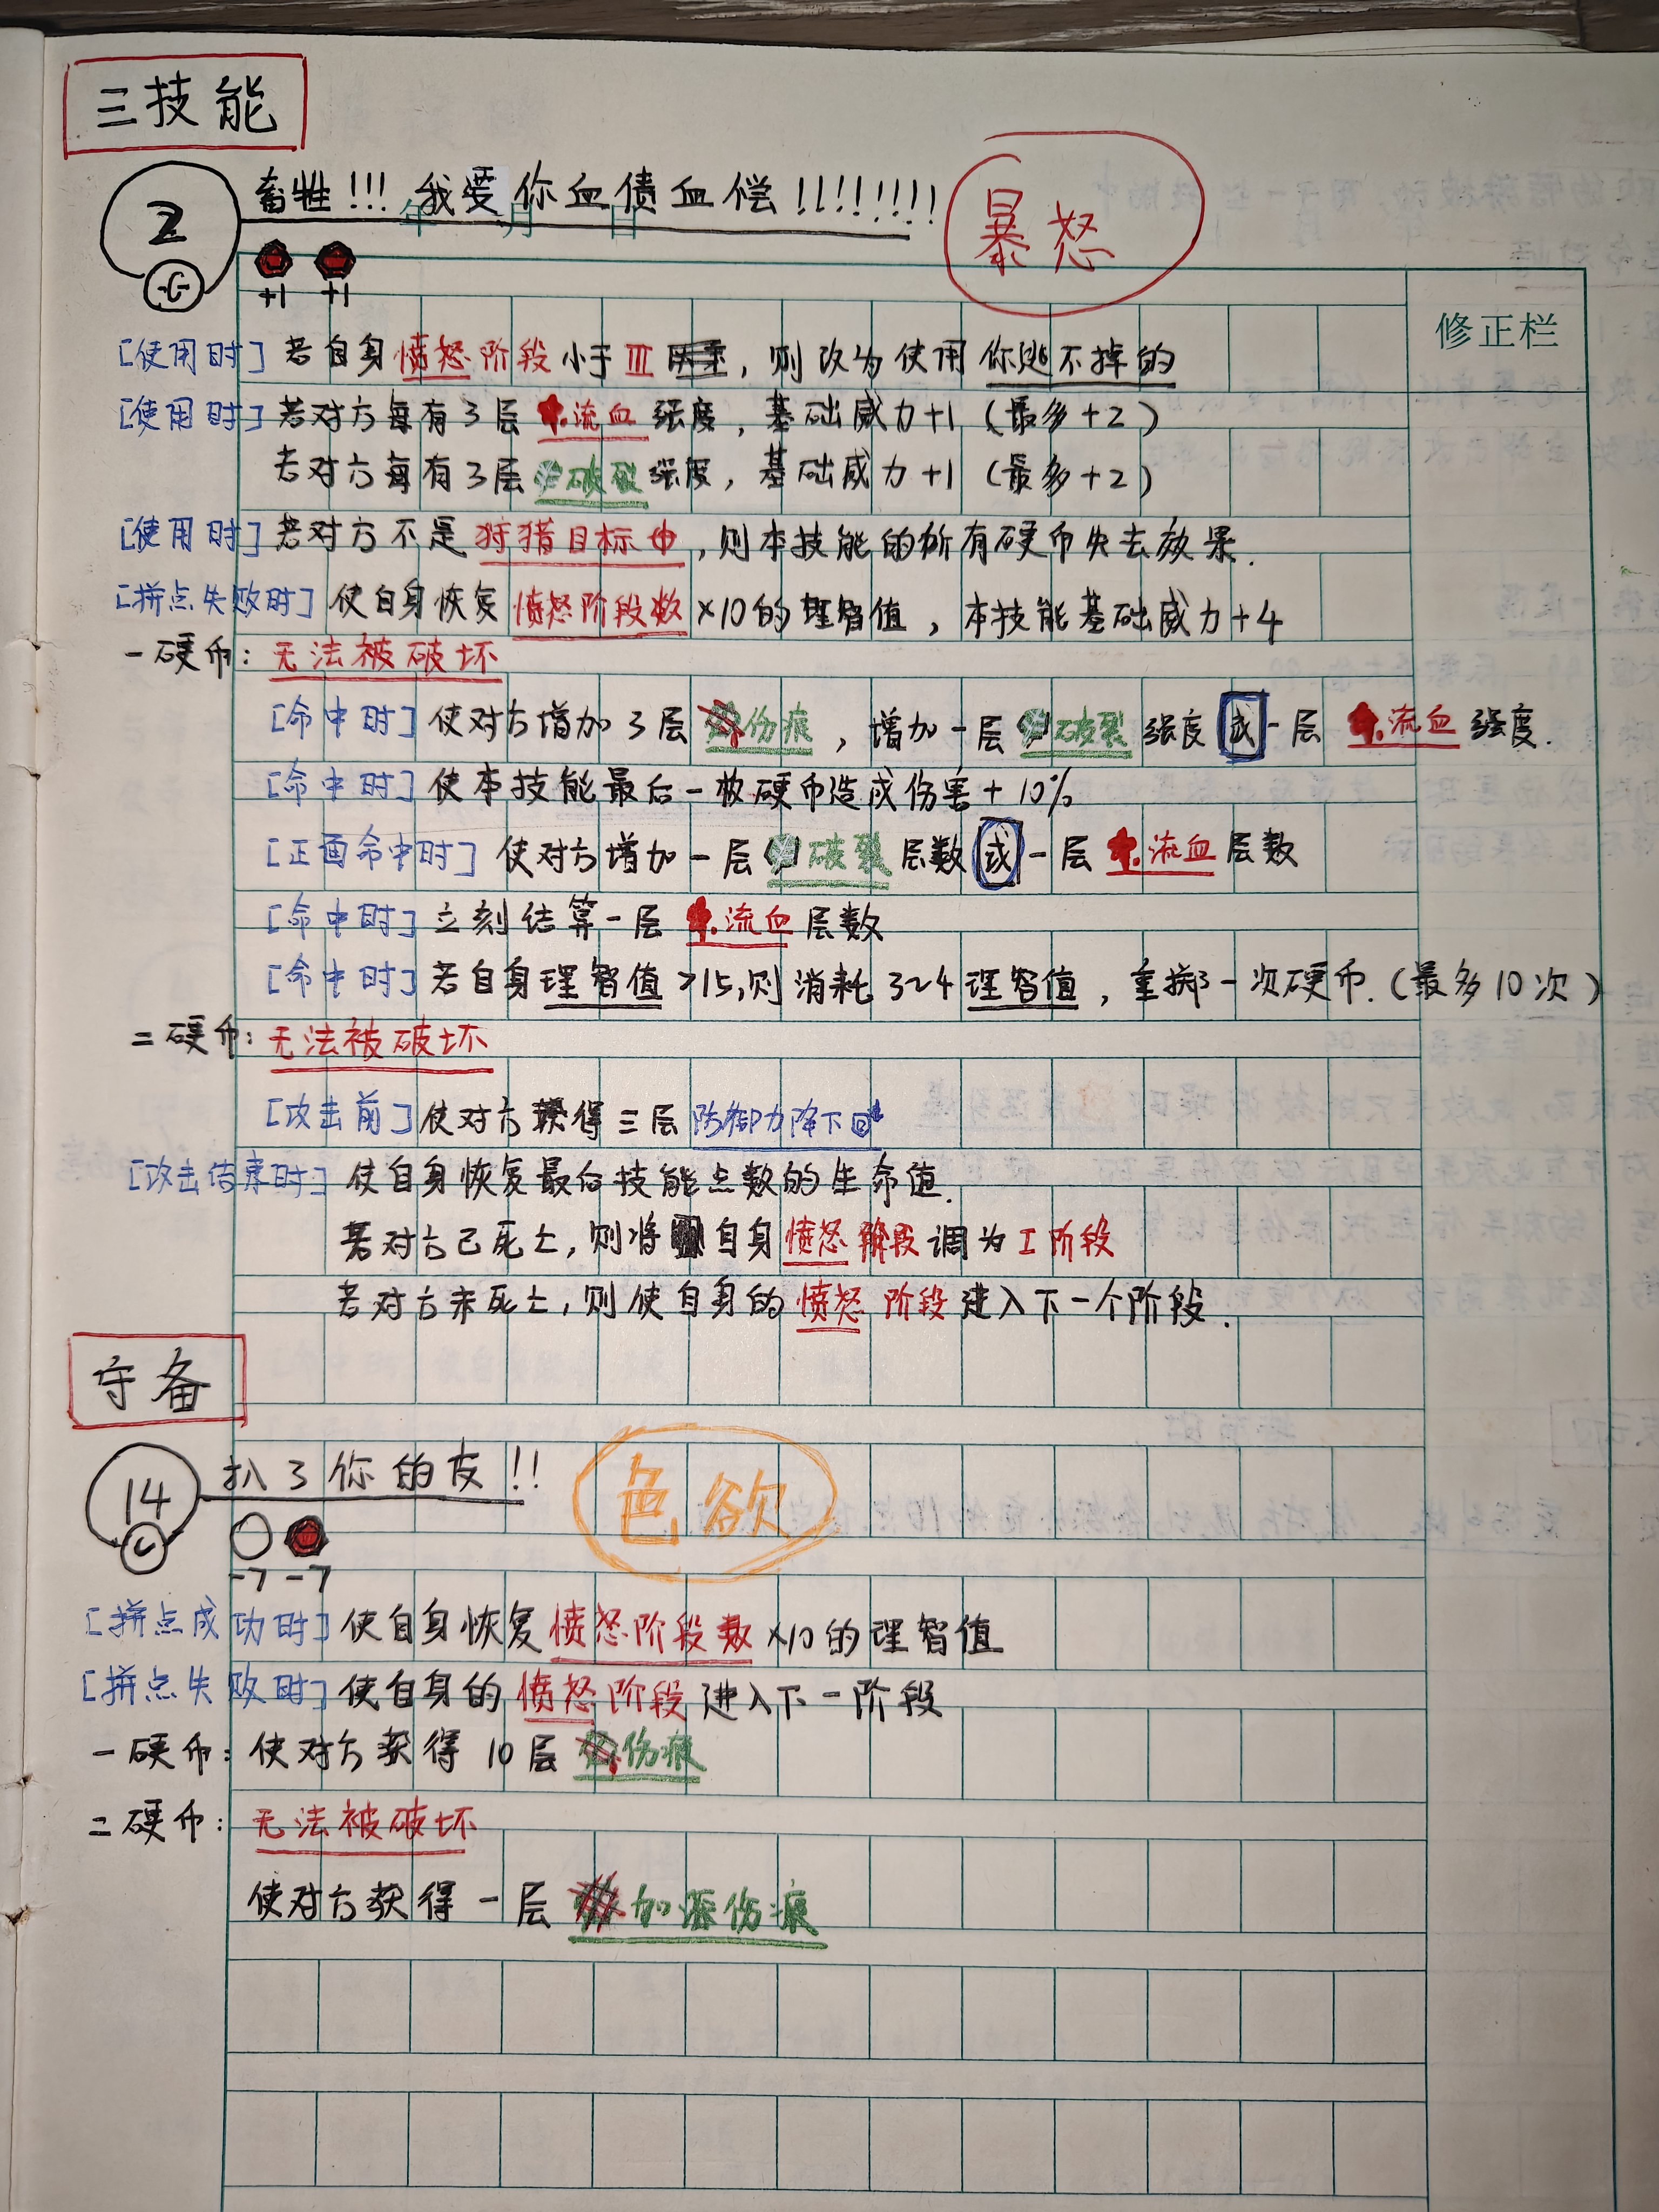 三技能
2
畜牲!!! 我要你血债血偿!!!!!!!!
暴怒
年 月 日
+1 +1
修正栏
[使用时] 若自身愤怒阶段小于III, 则改为使用你逃不掉的
[使用时] 若对方每有3层流血强度, 基础威力+1 (最多+2)
若对方每有3层破裂强度, 基础威力+1 (最多+2)
[使用时] 若对方不是狩猎目标, 则本技能的所有硬币失去效果.
[拼点失败时] 使自身恢复愤怒阶段数×10的理智值, 本技能基础威力+4
一硬币: 无法被破坏
[命中时] 使对方增加3层伤痕, 增加一层破裂强度或一层流血强度.
[命中时] 使本技能最后一枚硬币造成伤害+10%
[正面命中时] 使对方增加一层破裂层数或一层流血层数
[命中时] 立刻结算一层流血层数
[命中时] 若自身理智值>15,则消耗3~4理智值, 重掷一次硬币.(最多10次)
二硬币: 无法被破坏
[攻击前] 使对方获得三层防御力降下
[攻击结束时] 使自身恢复最后技能点数的生命值.
若对方已死亡, 则将自身愤怒阶段调为I阶段
若对方未死亡, 则使自身的愤怒阶段进入下一个阶段.
守备
14
扒了你的皮!!
色欲
-7 -7
[拼点成功时] 使自身恢复愤怒阶段数×10的理智值
[拼点失败时] 使自身的愤怒阶段进入下一阶段
一硬币: 使对方获得10层伤痕
二硬币: 无法被破坏
使对方获得一层加深伤痕